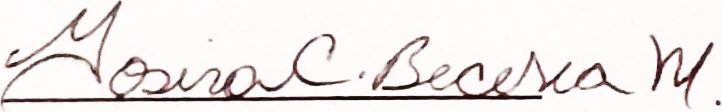 Yosira C. Becerra M.